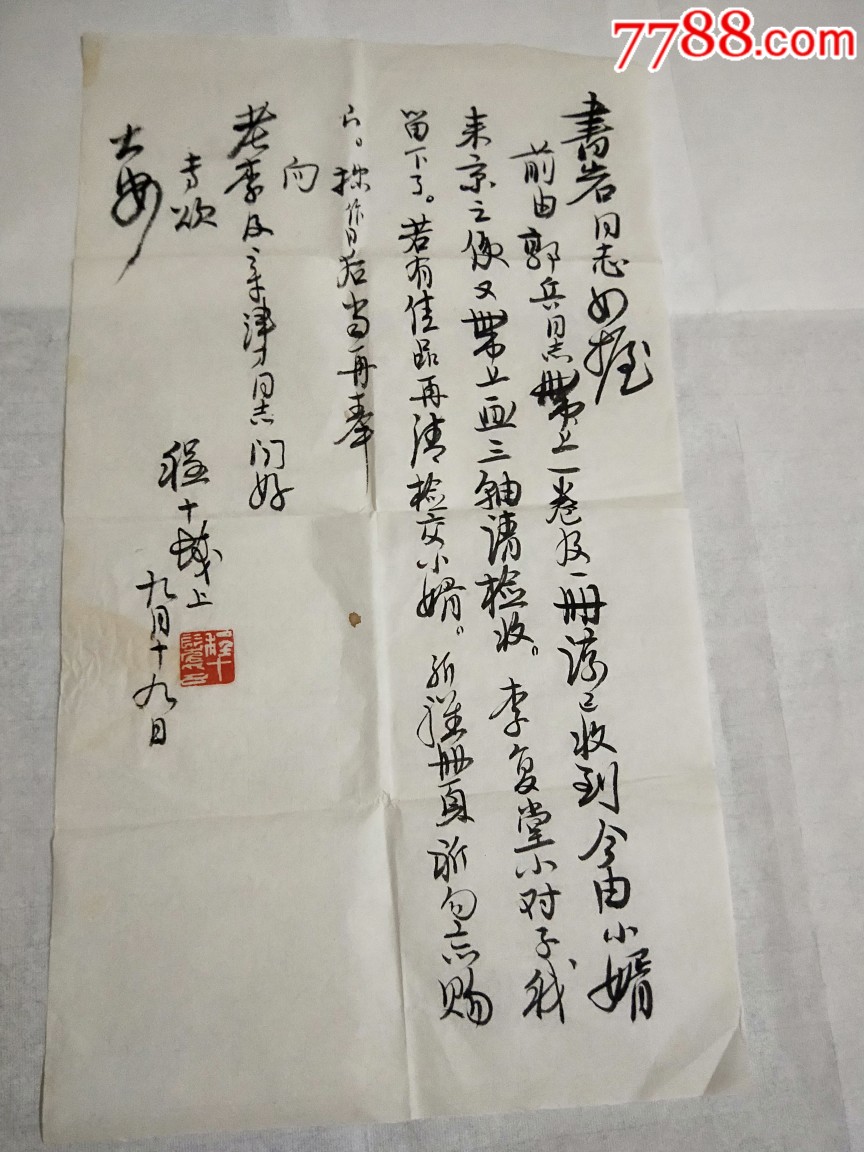 7788.com
书岩同志如握
前由郭兵同志带上一卷及一册谅已收到今由小婿
来京之便又带上画三轴请检收。李复堂小对子我
留下了。若有佳品再请检交小婿。所催册页祈勿忘赐
下。拙作日后当再奉
向
老李及章津才同志问好
专颂
大安
程十发上
九月十九日
程十